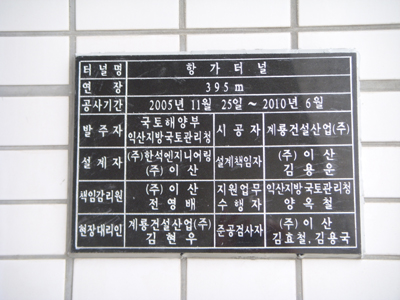 터널명 항가터널
연장 395m
공사기간 2005년 11월 25일 ~ 2010년 6월
발주자 국토해양부 익산지방국토관리청 시공자 계룡건설산업(주)
설계자 (주)한석엔지니어링 (주)이산 설계책임자 (주)이산 김용운
책임감리원 (주)이산 전영배 지원업무수행자 익산지방국토관리청 양옥철
현장대리인 계룡건설산업(주) 김현우 준공검사자 (주)이산 김효철, 김용국